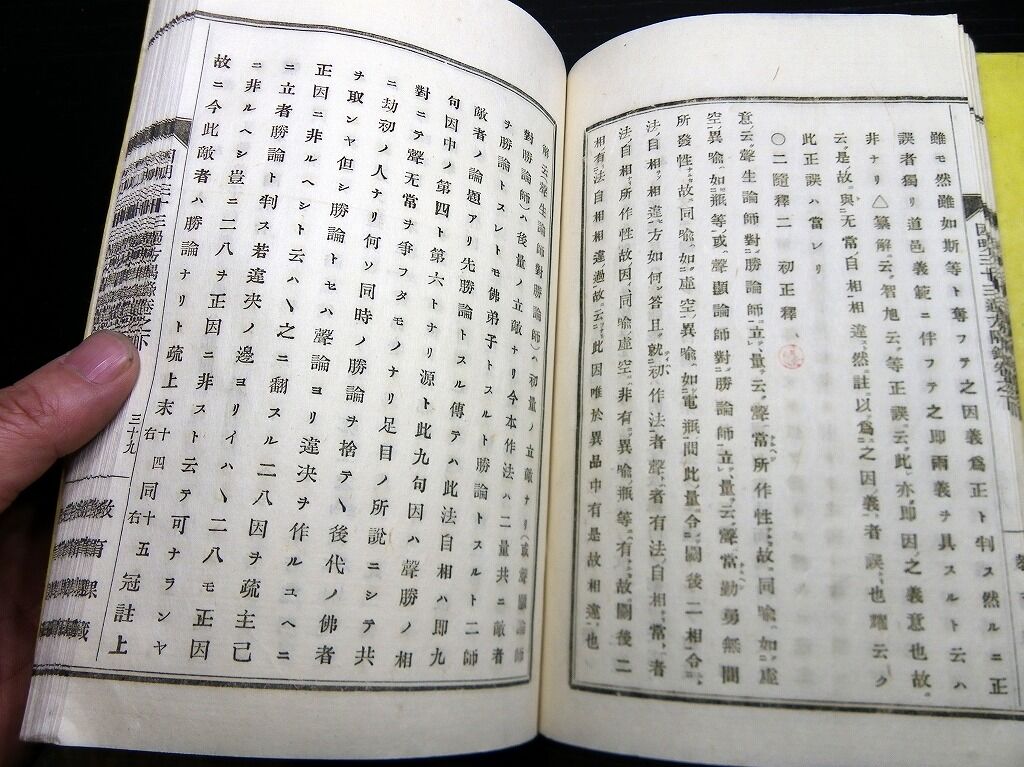 雖モ然雖如斯等ト奪フテ之因義爲正ト判スル然ルニ正
誤者獨リ道邑義範ニ伴フテ之即兩義ヲ具スルト云ハ
非ナリ△纂解ニ云ク智旭云ク等正誤ニ云ク此亦即因之義意也故ニ
云ク是故與无常自相相違ス然註ニ以爲之因義者誤也耀云ク
此正誤ハ當レリ
〇二隨釋二 初正釋
意云聲生論師對勝論師立量云聲常所作性故同喩如虛
空異喩如瓶等或聲顯論師對勝論師立量云聲常勤勇無間
所發性故同喩如虛空異喩如電瓶間此量令闕後二相令
法自相相違方如何答且就初作法者聲者有法自相常者
法自相所作性故因同喩虛空非有異喩瓶等有故闕後二
相有法自相相違過故云此因唯於異品中有是故相違也
解云聲生論師對勝論師ハ初量ノ立敵ナリ(或聲顯論師
對勝論師)ハ後量ノ立敵ナリ今本作法ハ二量共ニ敵者
ヲ勝論トスレトモ佛弟子トスルト勝論トスルト二師
敵者ノ論題アリ先勝論トスル傳テハ此法自相ハ即九
句因中ノ第四ト第六トナリ源ト此九句因ハ聲勝ノ相
對ニテ聲无常ヲ爭フタモノナリ足目ノ所說ニシテ共
ニ劫初ノ人ナリ何ソ同時ノ勝論ヲ捨テヽ後代ノ佛者
ヲ取ンヤ但シ勝論トセハ聲論ヨリ違決ヲ作ルユヘニ
正因ニ非ルヘシト云ハヽ之ニ翻スル二八因ヲ疏主己
ニ立者勝論ト判ス若違決ノ邊ヨリイハヽ二八モ正因
ニ非ルヘシ豈ニ二八ヲ正因ニ非スト云テ可ナランヤ
故ニ今此敵者ハ勝論ナリト疏上末十右四同十右五冠註上
三十九